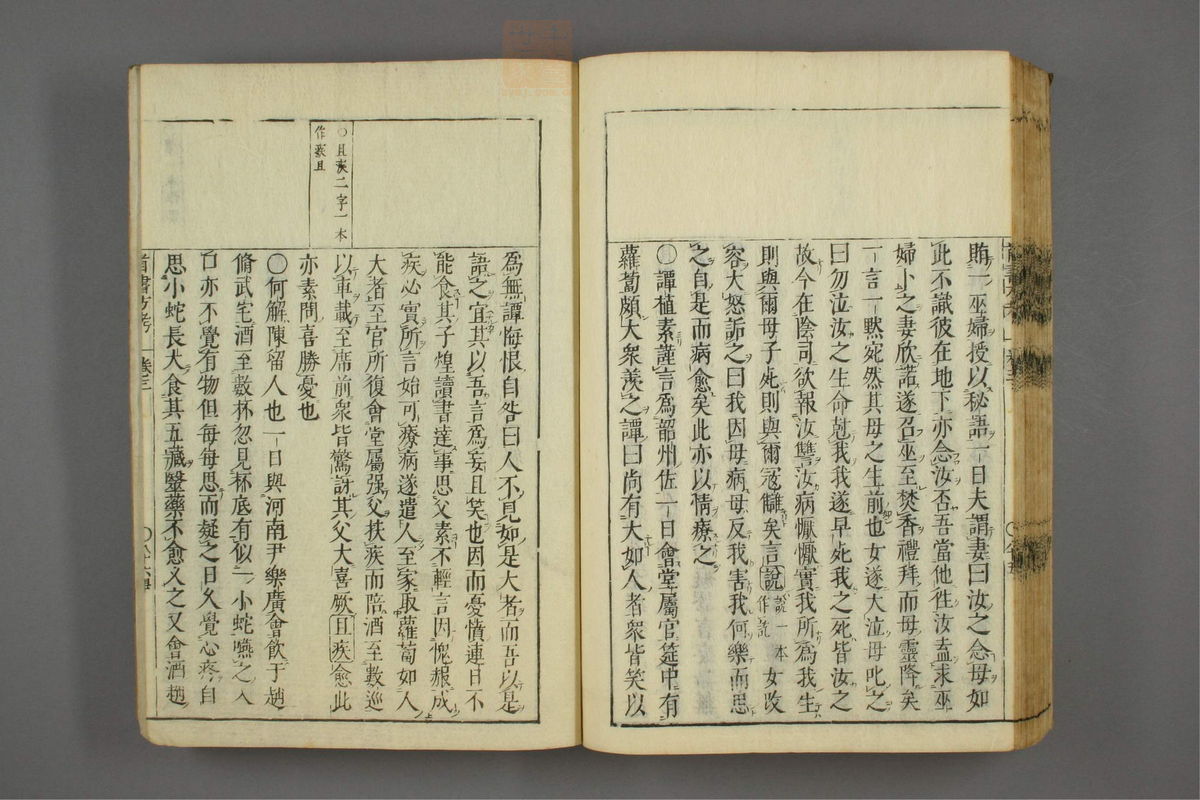 賄一巫婦授以秘語一日夫謂妻曰汝之念母如
此不識彼在地下亦念汝否吾當他徃汝盍求巫
婦卜之妻欣諾遂召巫至焚香禮拜而母靈降矣
一言一默宛然其母之生前也女遂大泣母叱之
曰勿泣汝之生命尅我我遂早死我之死皆汝之
故今在陰司欲報汝讐汝病懨懨實我所爲我生
則與爾母子死則與爾冦讎矣言說說一本作訖女改
容大怒詬之曰我因母病母反我害我何樂而思
之自是而病愈矣此亦以情療之
〇譚植素謹言爲韶州佐一日會堂屬官筵中有
蘿蔔頗大衆羨之譚曰尚有大如人者衆皆笑以
爲無譚悔恨自咎曰人不見如是大者而吾以是
語之宜其以吾言爲妄且笑也因而憂憤連日不
能食其子煌讀書達事思父素不輕言因愧報成
疾必實所言始可療病遂遣人至家取蘿蔔如人
大者至官所復會堂屬强父扶疾而陪酒至數巡
以車載至席前衆皆驚訝其父大喜厥且疾愈此
亦素問喜勝憂也
〇何解陳留人也一日與河南尹樂廣會飲于趙
脩武宅酒至數杯忽見杯底有似一小蛇嚥之入
口亦不覺有物但每每思而疑之日久覺心疼自
思小蛇長大食其五藏醫藥不愈乂之又會酒趙
〇且疾二字一本
作疾且
卷三